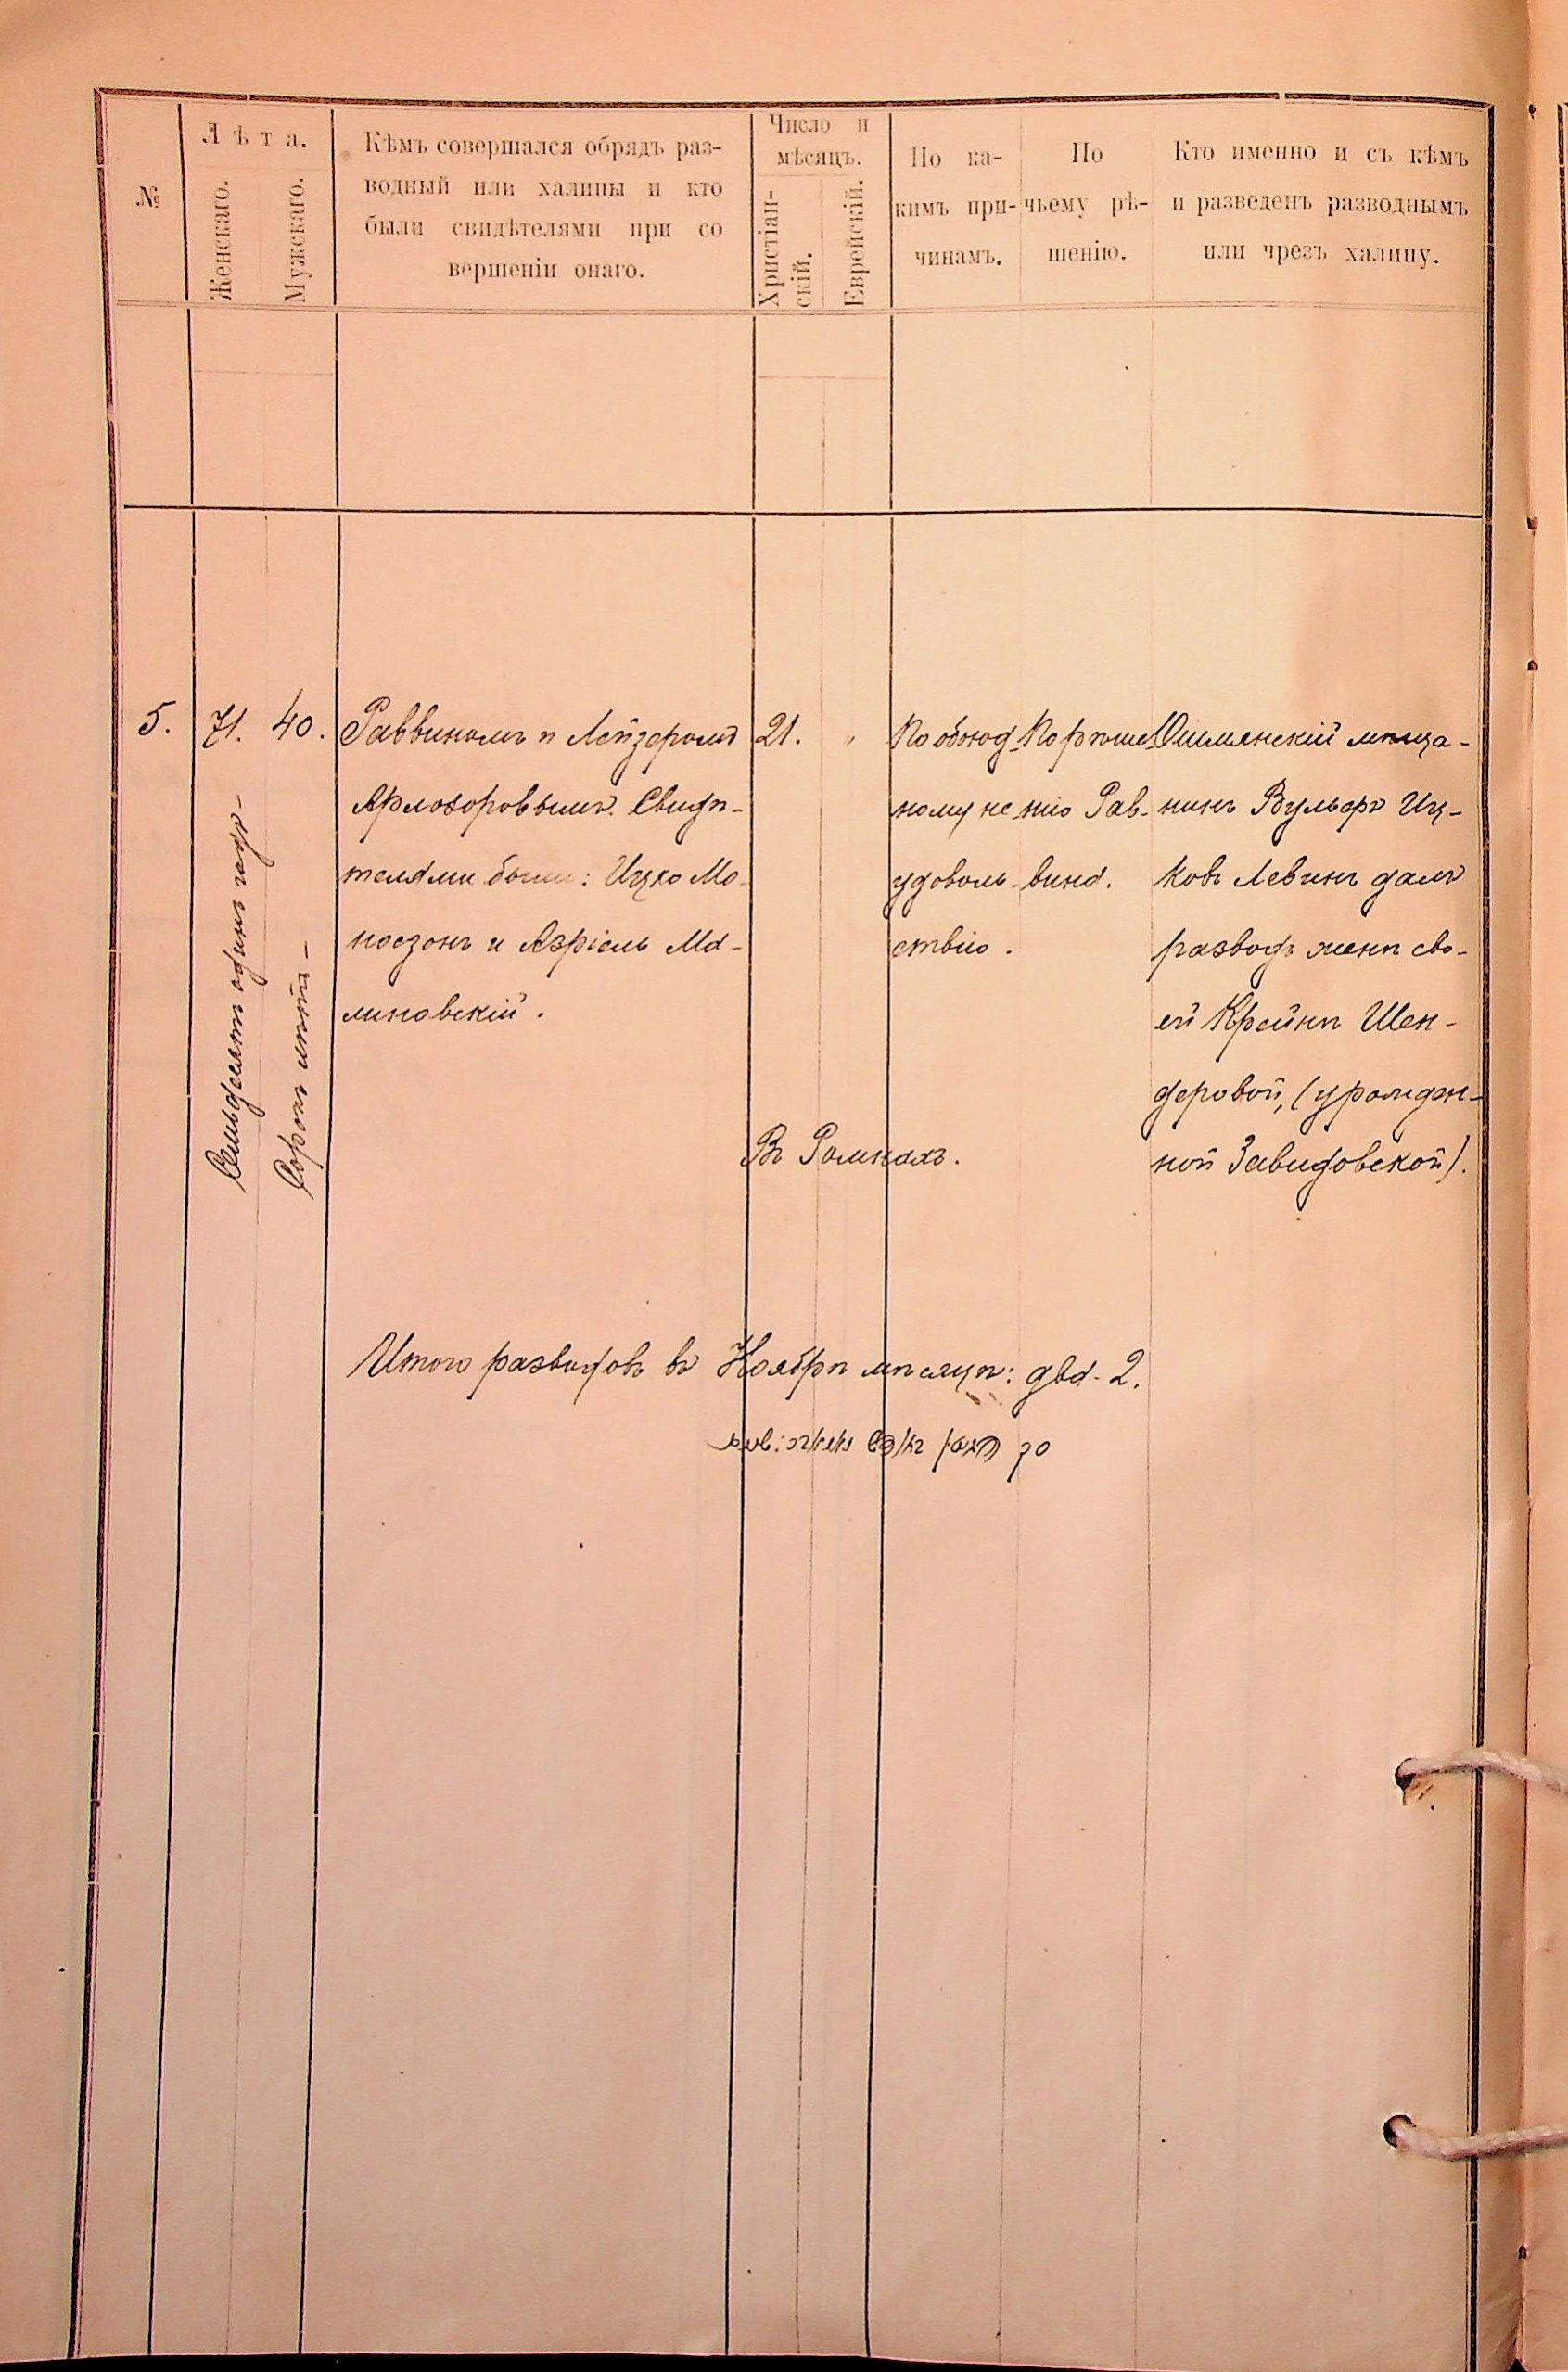 №
Лѣта.
Женскаго.
Мужскаго.
Кѣмъ совершался обрядъ раз-
водный или халицы и кто
были свидѣтелями при со
вершеніи онаго.
Число и
мѣсяцъ.
Христіан-
скій.
Еврейскій.
По ка-
кимъ при-
чинамъ.
По
чьему рѣ-
шенію.
Кто именно и съ кѣмъ
и разведенъ разводнымъ
или чрезъ халицу.
5.
71.
Семьдесятъ одинъ годъ-
40.
Сорокъ лѣтъ-
Раввиномъ Лейзеромъ
Арлозоровымъ. Свидѣ-
телями были: Ицко Мо-
ноезонъ и Азріель Ма-
линовскій.
21.
Въ Ромнахъ.
По обоюд-
ному не
удоволь-
ствію.
По рѣше-
нію Рав-
вина.
Ошмянскій мѣща-
нинъ Вульфъ Иц-
ковъ Левинъ далъ
разводъ женѣ сво-
ей Крейнѣ Шен-
деровой, (урожден-
ной Завидовской).
Итого разводовъ въ Ноябрѣ мѣсяцѣ: два-2.